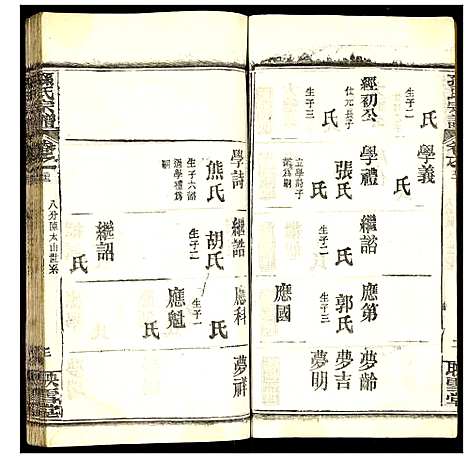 孫氏宗譜
學義
氏
經初公
仕元長子
生子三
氏
學禮
張氏
立學詩子
繼諮為嗣
繼諮
氏
生子二
應第
郭氏
生子三
應國
夢齡
夢吉
夢明
學詩
熊氏
生子六諮
過學禮為
嗣
繼誥
胡氏
生子二
繼詔
氏
應科
氏
生子一
應魁
氏
夢祥
孫氏宗譜
八分陳太山世系
映雪堂